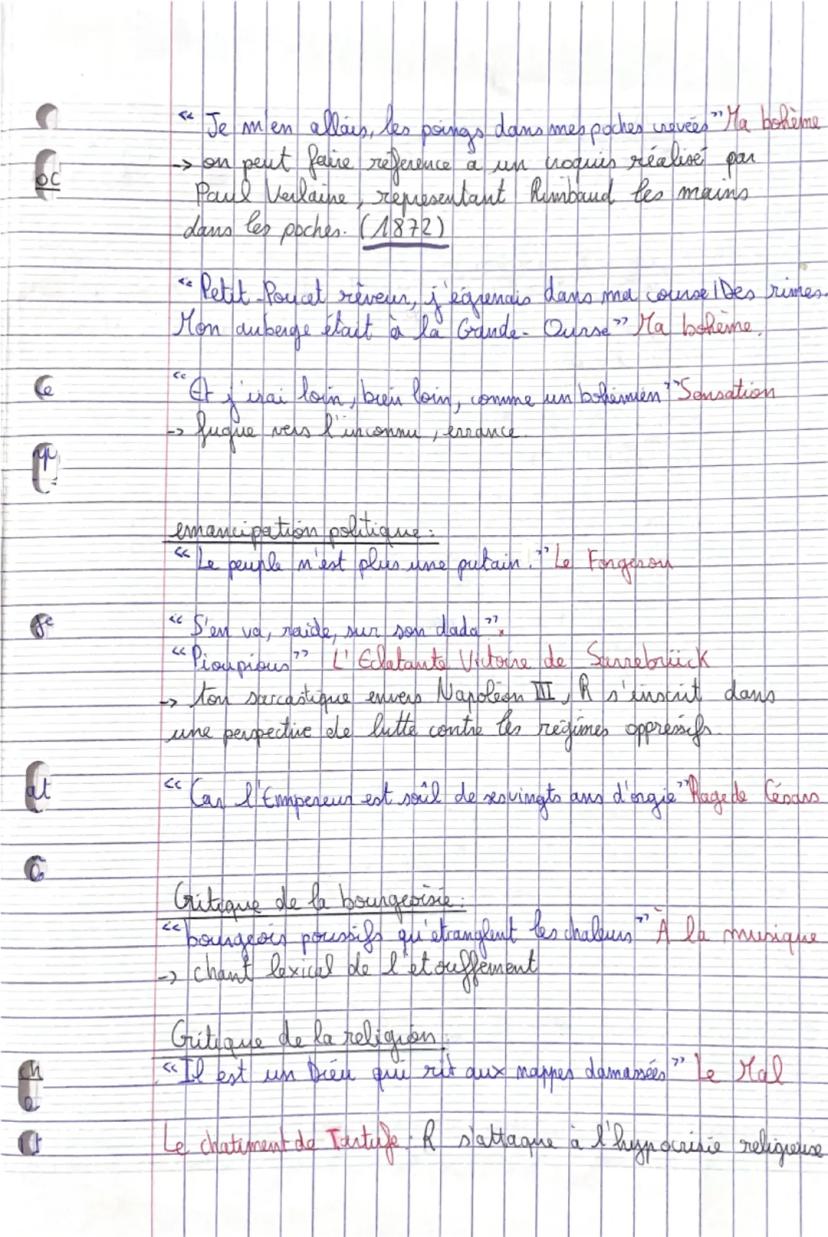 "Je m'en allais, les poings dans mes poches crevées" Ma bohème
-> on peut faire référence à un croquis réalisé par
oc
Paul Verlaine, représentant Rimbaud les mains
dans les poches. (1872)
"Petit-Poucet rêveur, j'égrenais dans ma course/Des rimes.
Mon auberge était à la Grande-Ourse" Ma bohème.
"Et j'irai loin, bien loin, comme un bohémien" Sensation
-> fugue vers l'inconnu, errance.
émancipation politique :
"Le peuple n'est plus une putain." Le Forgeron
"S'en va, raide, sur son dada".
"Pioupious" L'Eclatante Victoire de Sarrebrück
-> ton sarcastique envers Napoléon III, R s'inscrit dans
une perspective de lutte contre les régimes oppressifs.
at
"Car l'Empereur est soûl de ses vingts ans d'orgie" Rage de Césars
Critique de la bourgeoisie :
"bourgeois poussifs qu'étranglent les chaleurs" À la musique
-> chant lexical de l'étouffement
Critique de la religion :
"Il est un Dieu qui rit aux nappes damassées" Le Mal
Le chatiment de Tartufe : R s'attaque à l'hypocrisie religieuse